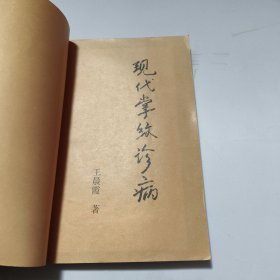 现代掌纹诊病
王晨霞 著